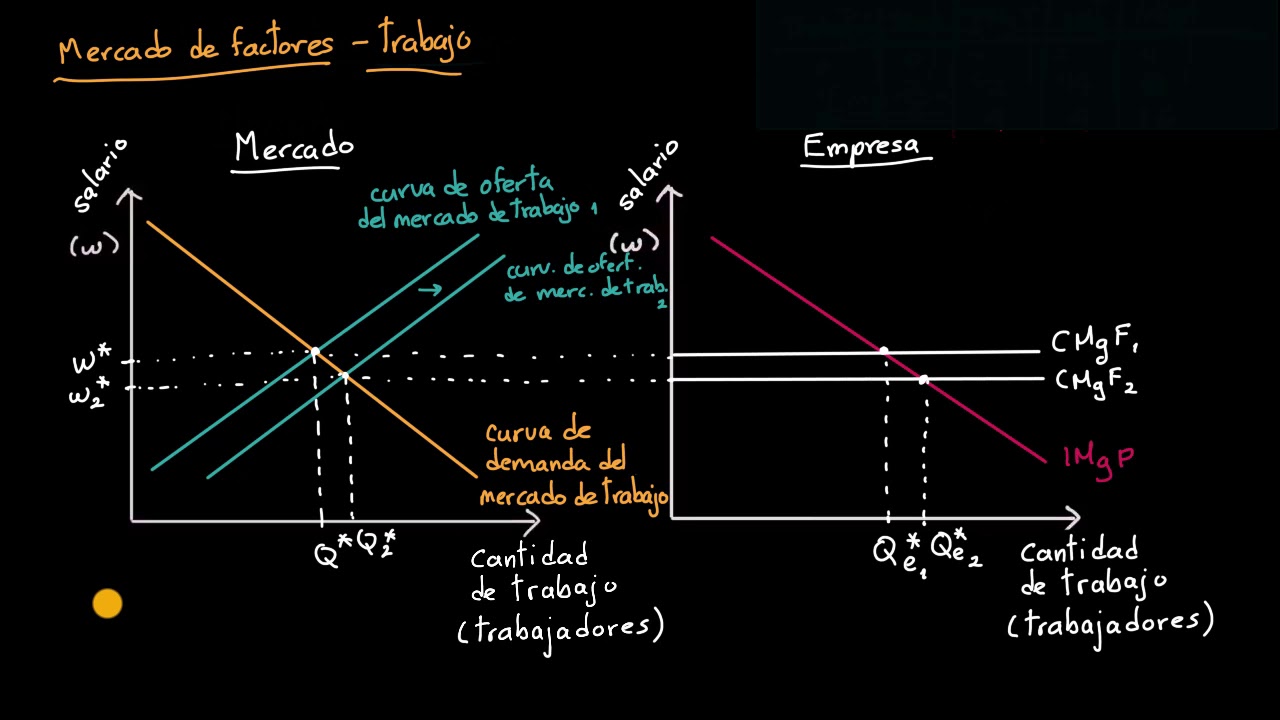 Mercado de factores - trabajo
Mercado
salario
(w)
curva de oferta
del mercado de trabajo 1
curv. de ofert.
de merc. de trab.
2
w*
w₂*
curva de
demanda del
mercado de trabajo
Q* Q₂*
cantidad
de trabajo
(trabajadores)
Empresa
salario
(w)
CMgF₁
CMgF₂
IMgP
Qe₁* Qe₂*
cantidad
de trabajo
(trabajadores)